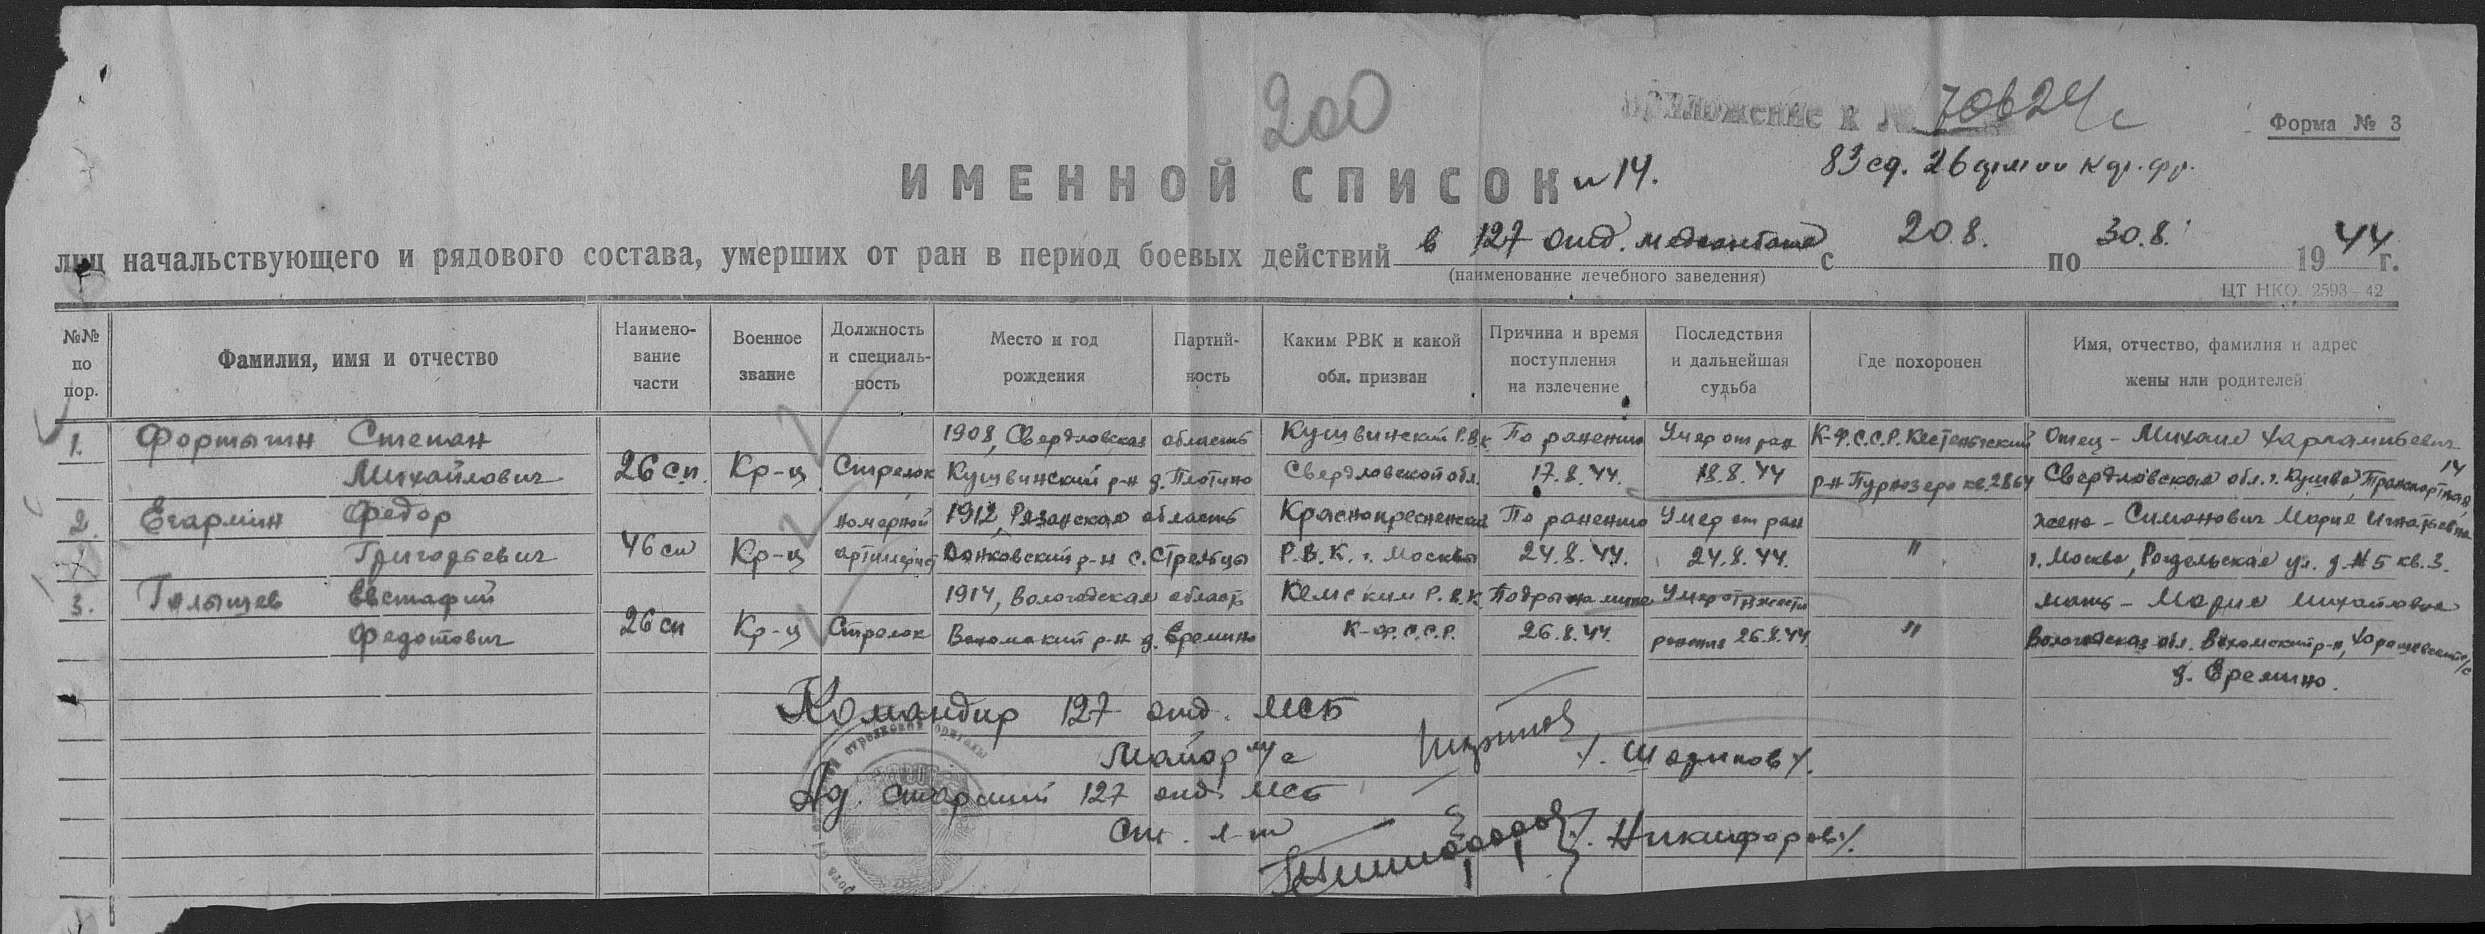 200
Приложение к № 70624с
Форма № 3
83 сд. 26 армии Кар. фр.
ИМЕННОЙ СПИСОК н 14.
лиц начальствующего и рядового состава, умерших от ран в период боевых действий в 127 отд. медсанбате с 20.8. по 30.8. 1944 г.
(наименование лечебного заведения)
ЦТ НКО. 2593—42
№№ по пор.
Фамилия, имя и отчество
Наименование части
Военное звание
Должность и специальность
Место и год рождения
Партийность
Каким РВК и какой обл. призван
Причина и время поступления на излечение
Последствия и дальнейшая судьба
Где похоронен
Имя, отчество, фамилия и адрес жены или родителей
1. Фортыгин Степан 1908, Свердловская область Кушвинский Р.В.К По ранению Умер от ран К-Ф.С.С.Р. Кестеньгский Отец - Михаил Харлампьевич
Михайлович 26 сп. Кр-ц Стрелок Кушвинский р-н д. Плотино Свердловской обл. 17.8.44. 18.8.44 р-н Пурнозеро кв. 2864 Свердловская обл. г. Кушва, Транспортная, 14
2. Егармин Федор номерной 1912, Рязанская область Краснопресненский По ранению Умер от ран жена - Симонович Мария Игнатьевна
Григорьевич 46 сп Кр-ц артиллерист Данковский р-н с. Стрельцы Р.В.К. г. Москвы 24.8.44. 24.8.44. " г. Москва, Рогдельская ул. д. № 5 кв. 3.
3. Галышев Евстафий 1914, Вологодская область Кемским Р.В.К. Подрыв на мине Умер от тяжести мать - Мария Михайловна
Федотович 26 сп Кр-ц Стрелок Вохомский р-н д. Еремино К-Ф.С.С.Р. 26.8.44. ранения 26.8.44. " Вологодская обл. Вохомский р-н, Хорошевский с/с
д. Еремино.
Командир 127 отд. МСБ
Майор м/с /. Шарипов /.
Ад. старший 127 отд. МСБ
Ст. л-т /. Никифоров /.